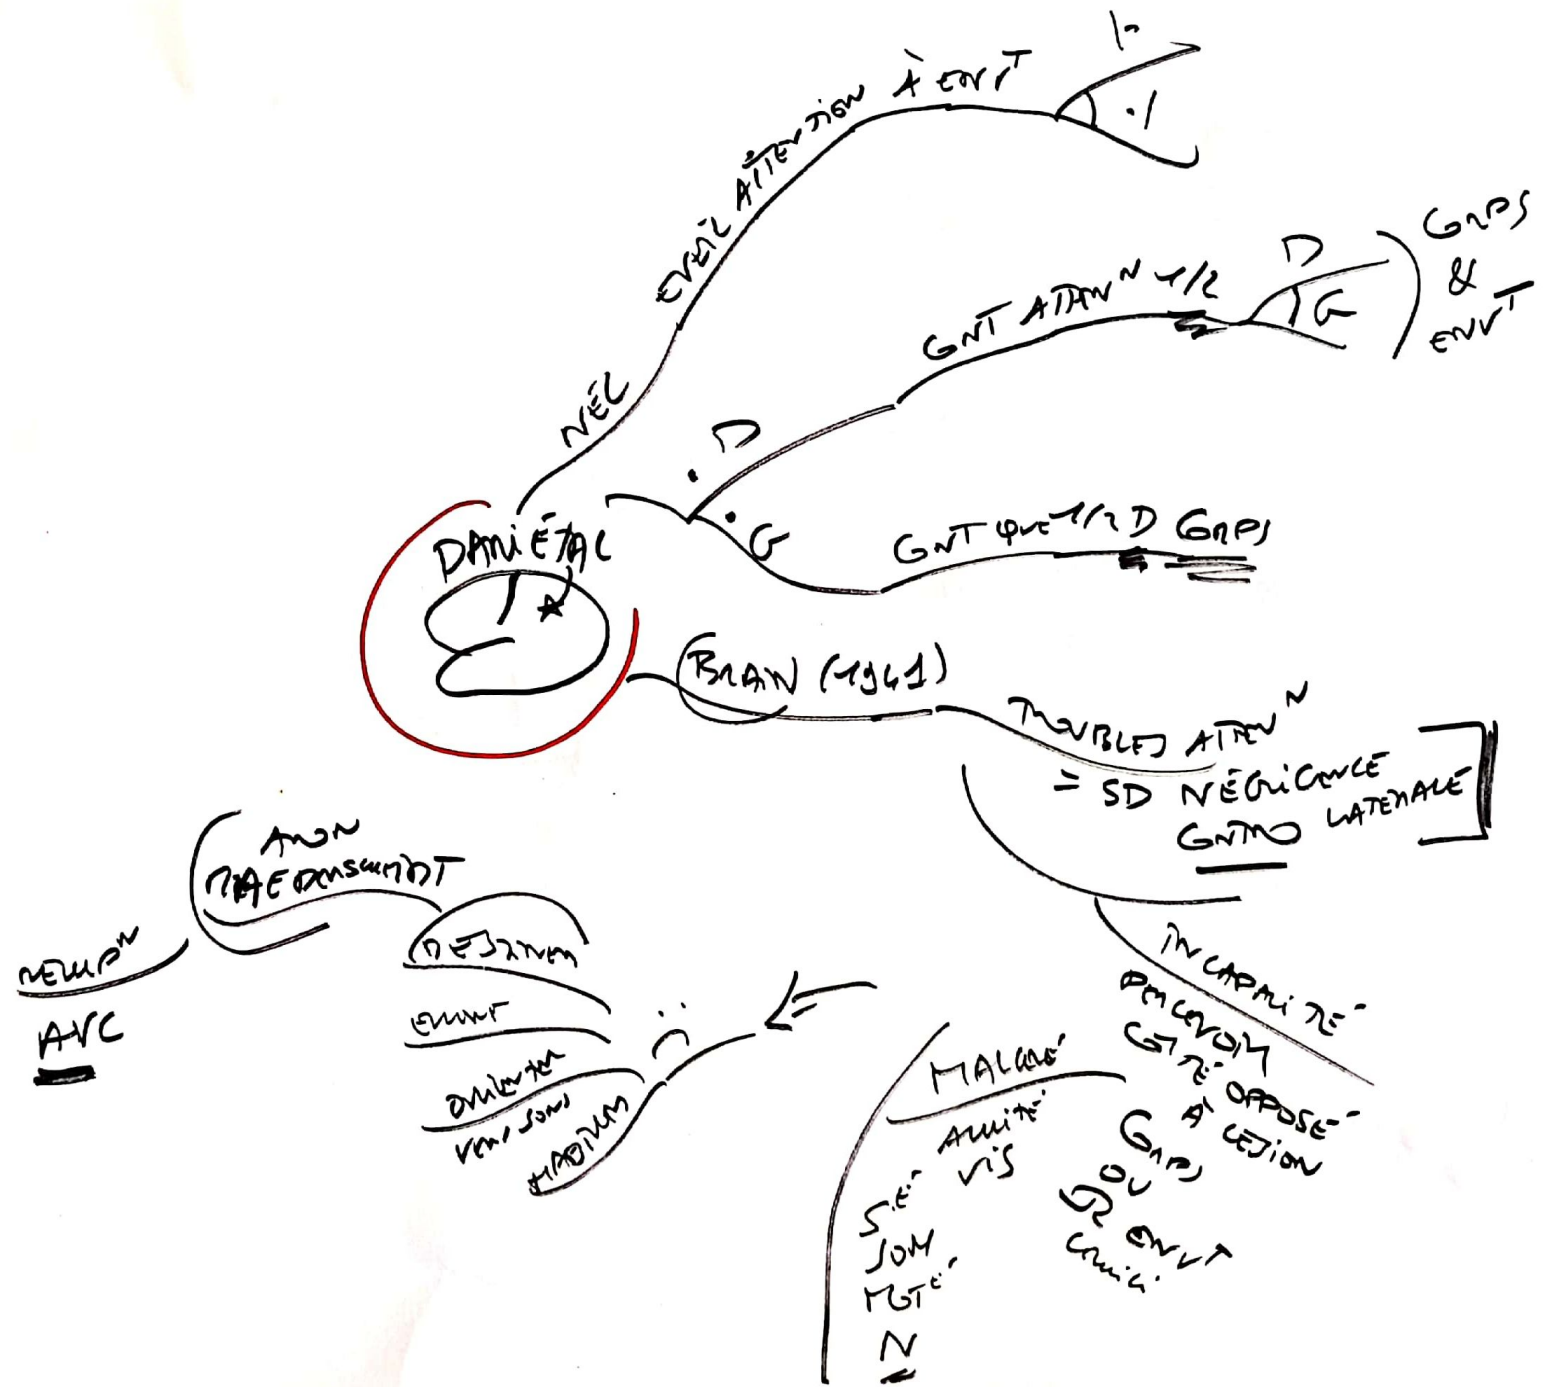 PARIÉTAL
RÉL
EVEIL ATTENTION À ENVT
D
G
CNT ATTENN 1/2
D
G
CORPS
&
ENVT
CNT QUE 1/2 D CORPS
BRAIN (1941)
TROUBLES ATTENN
= SD NÉGLIGENCE
CONTRO LATERALE
INCAPACITÉ
PERCEVOIR
COTÉ OPPOSÉ
À LESION
CORPS
OU
ENVT
MALGRÉ
ACUITÉ
VIS
SÉ
SOM
MOTÉ
N
DESSINER
ECRIRE
ORIENTER
VERS SONS
HABILLER
RECUPN
AVC